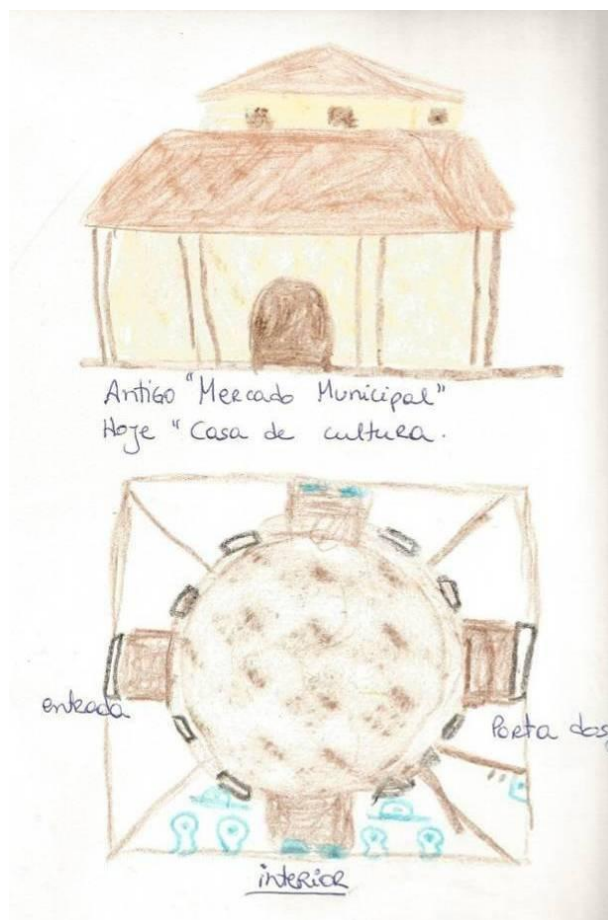 Antigo "Mercado Municipal"
Hoje "Casa de cultura.
entrada
Porta dos
interior